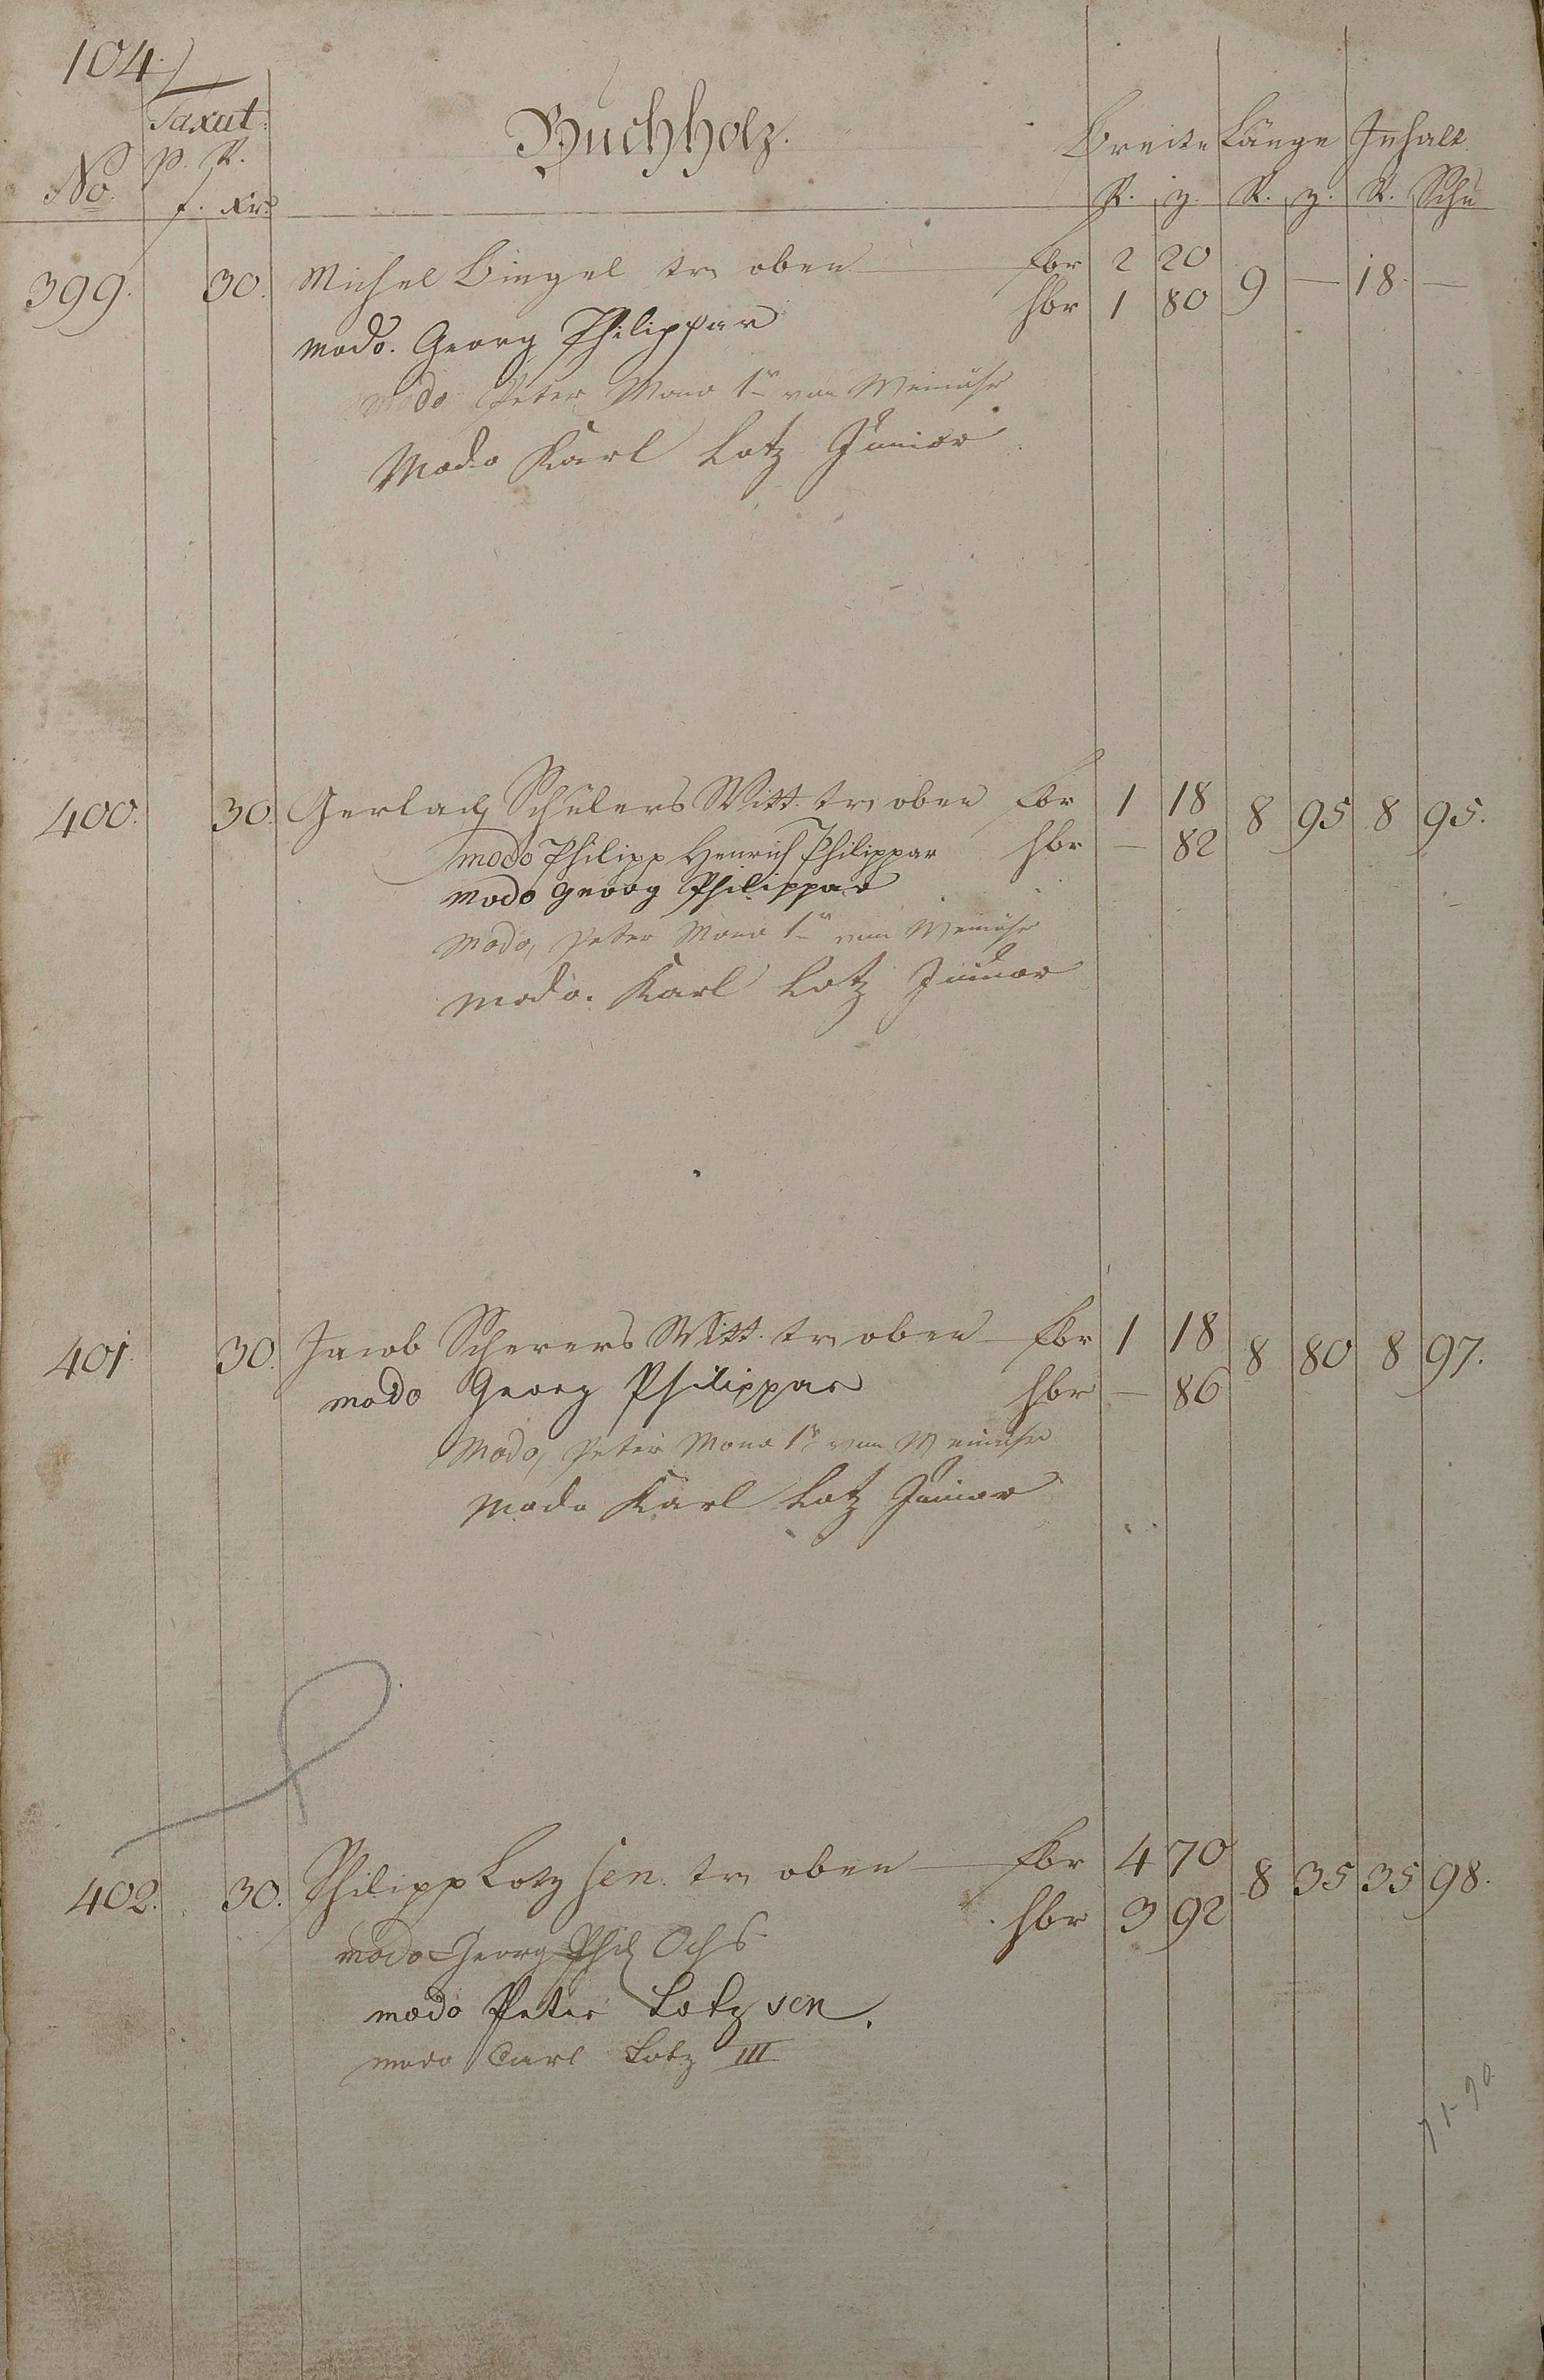 104.
Taxat:
Buchholz.
Breite Länge Inhalt
No. p. R.
f. Xr. R. z. R. z. R. Schu
399. 30. Michel Bingel tr. oben fbr 2 20 9 — 18. —
modo. Georg Philippar hbr 1 80
modo Peter Mono 1r von Weinähr
Modo Karl Lotz Junior
400. 30. Gerlach Schülers Witt. tr. oben fbr 1 18 8 95 8 95.
modo Philipp Henrich Philippar hbr — 82
modo Georg Philippar
modo, Peter Mono 1r von Weinähr
modo. Karl Lotz Junior
401. 30. Jacob Scherers Witt. tr. oben fbr 1 18 8 80 8 97.
modo Georg Philippar hbr — 86
Modo, Peter Mono 1r von Weinähr
Modo Karl Lotz Junior
402. 30. Philipp Lotz sen. tr. oben fbr 4 70 8 35 35 98.
modo Georg Phil Ochs hbr 3 92
modo Peter Lotz sen.
modo Carl Lotz III